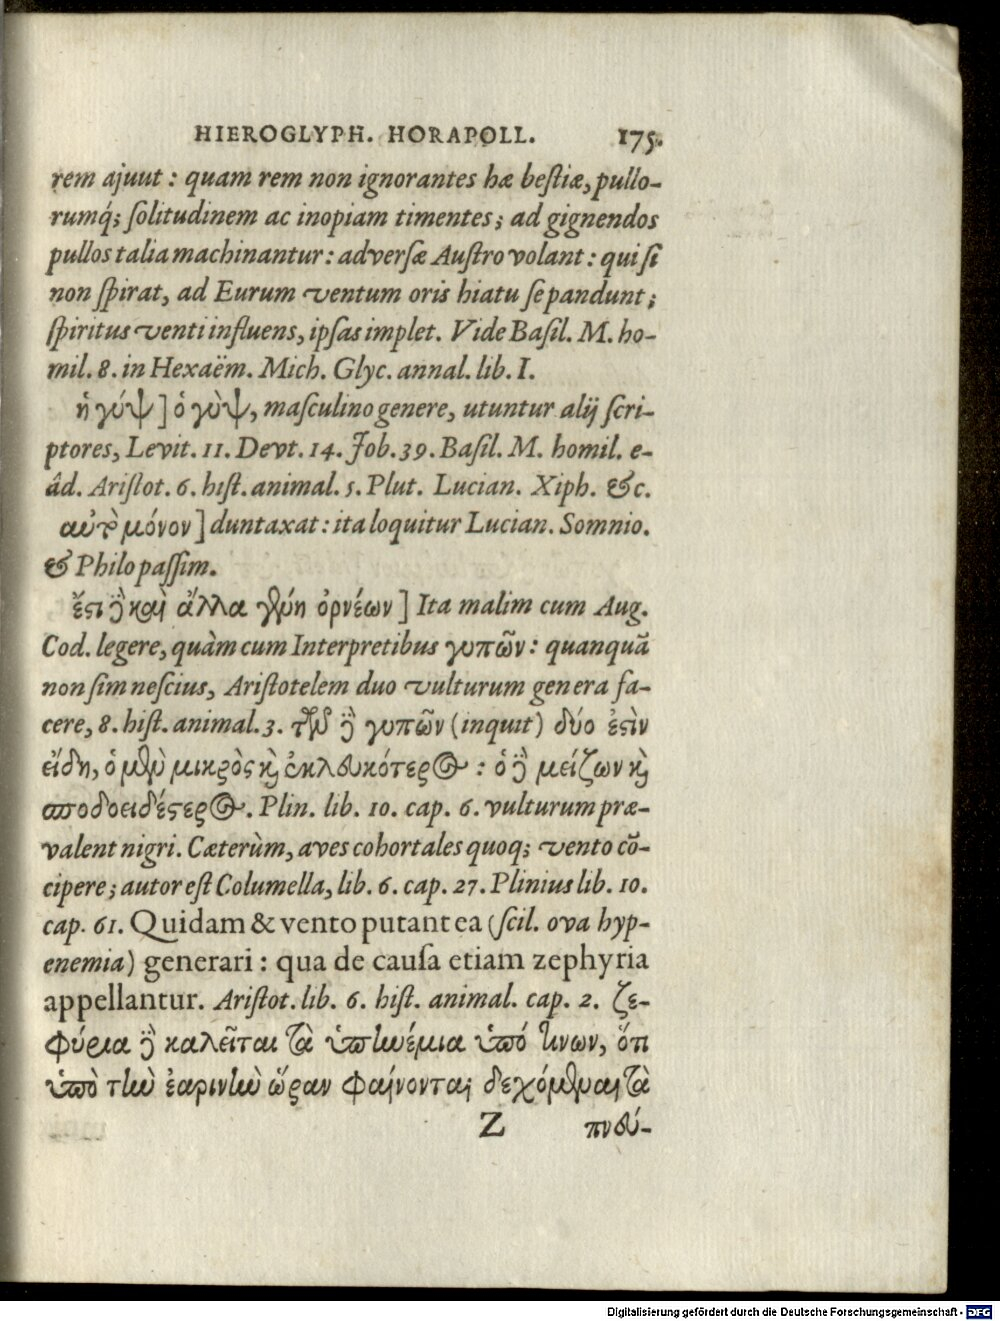 HIEROGLYPH. HORAPOLL. 175.
rem ajuut : quam rem non ignorantes hæ beſtiæ, pullo-
rumq́; ſolitudinem ac inopiam timentes; ad gignendos
pullos talia machinantur : adverſæ Auſtro volant : qui ſi
non ſpirat, ad Eurum ventum oris hiatu ſe pandunt;
ſpiritus venti influens, ipſas implet. Vide Baſil. M. ho-
mil. 8. in Hexaëm. Mich. Glyc. annal. lib. I.
ἡ γύψ] ὁ γὺψ, maſculino genere, utuntur alij ſcri-
ptores, Levit. 11. Devt. 14. Job. 39. Baſil. M. homil. e-
âd. Ariſtot. 6. hiſt. animal. 5. Plut. Lucian. Xiph. &c.
αὐτὸ μόνον] duntaxat : ita loquitur Lucian. Somnio.
& Philo paſſim.
ἔϛι ἢ καὶ ἄλλα γένη ὀρνέων] Ita malim cum Aug.
Cod. legere, quàm cum Interpretibus γυπῶν : quanquã
non ſim neſcius, Ariſtotelem duo vulturum genera fa-
cere, 8. hiſt. animal. 3. τῶν δὲ γυπῶν (inquit) δύο ἐϛὶν
εἴδη, ὁ μὲν μικρὸς κỳ ἐκλευκότερος : ὁ δὲ μείζων κỳ
σποδοειδέϛερος. Plin. lib. 10. cap. 6. vulturum præ-
valent nigri. Cæterùm, aves cohortales quoq; vento cõ-
cipere; autor eſt Columella, lib. 6. cap. 27. Plinius lib. 10.
cap. 61. Quidam & vento putant ea (ſcil. ova hyp-
enemia) generari : qua de cauſa etiam zephyria
appellantur. Ariſtot. lib. 6. hiſt. animal. cap. 2. ζε-
φύρια δὲ καλεῖται τὰ ὑπηνέμια ὑπό τινων, ὅτι
ὑπὸ τὴν ἐαρινὴν ὥραν φαίνονται δεχόμεναι τὰ
Z πνεύ-
Digitalisierung gefördert durch die Deutsche Forschungsgemeinschaft - DFG